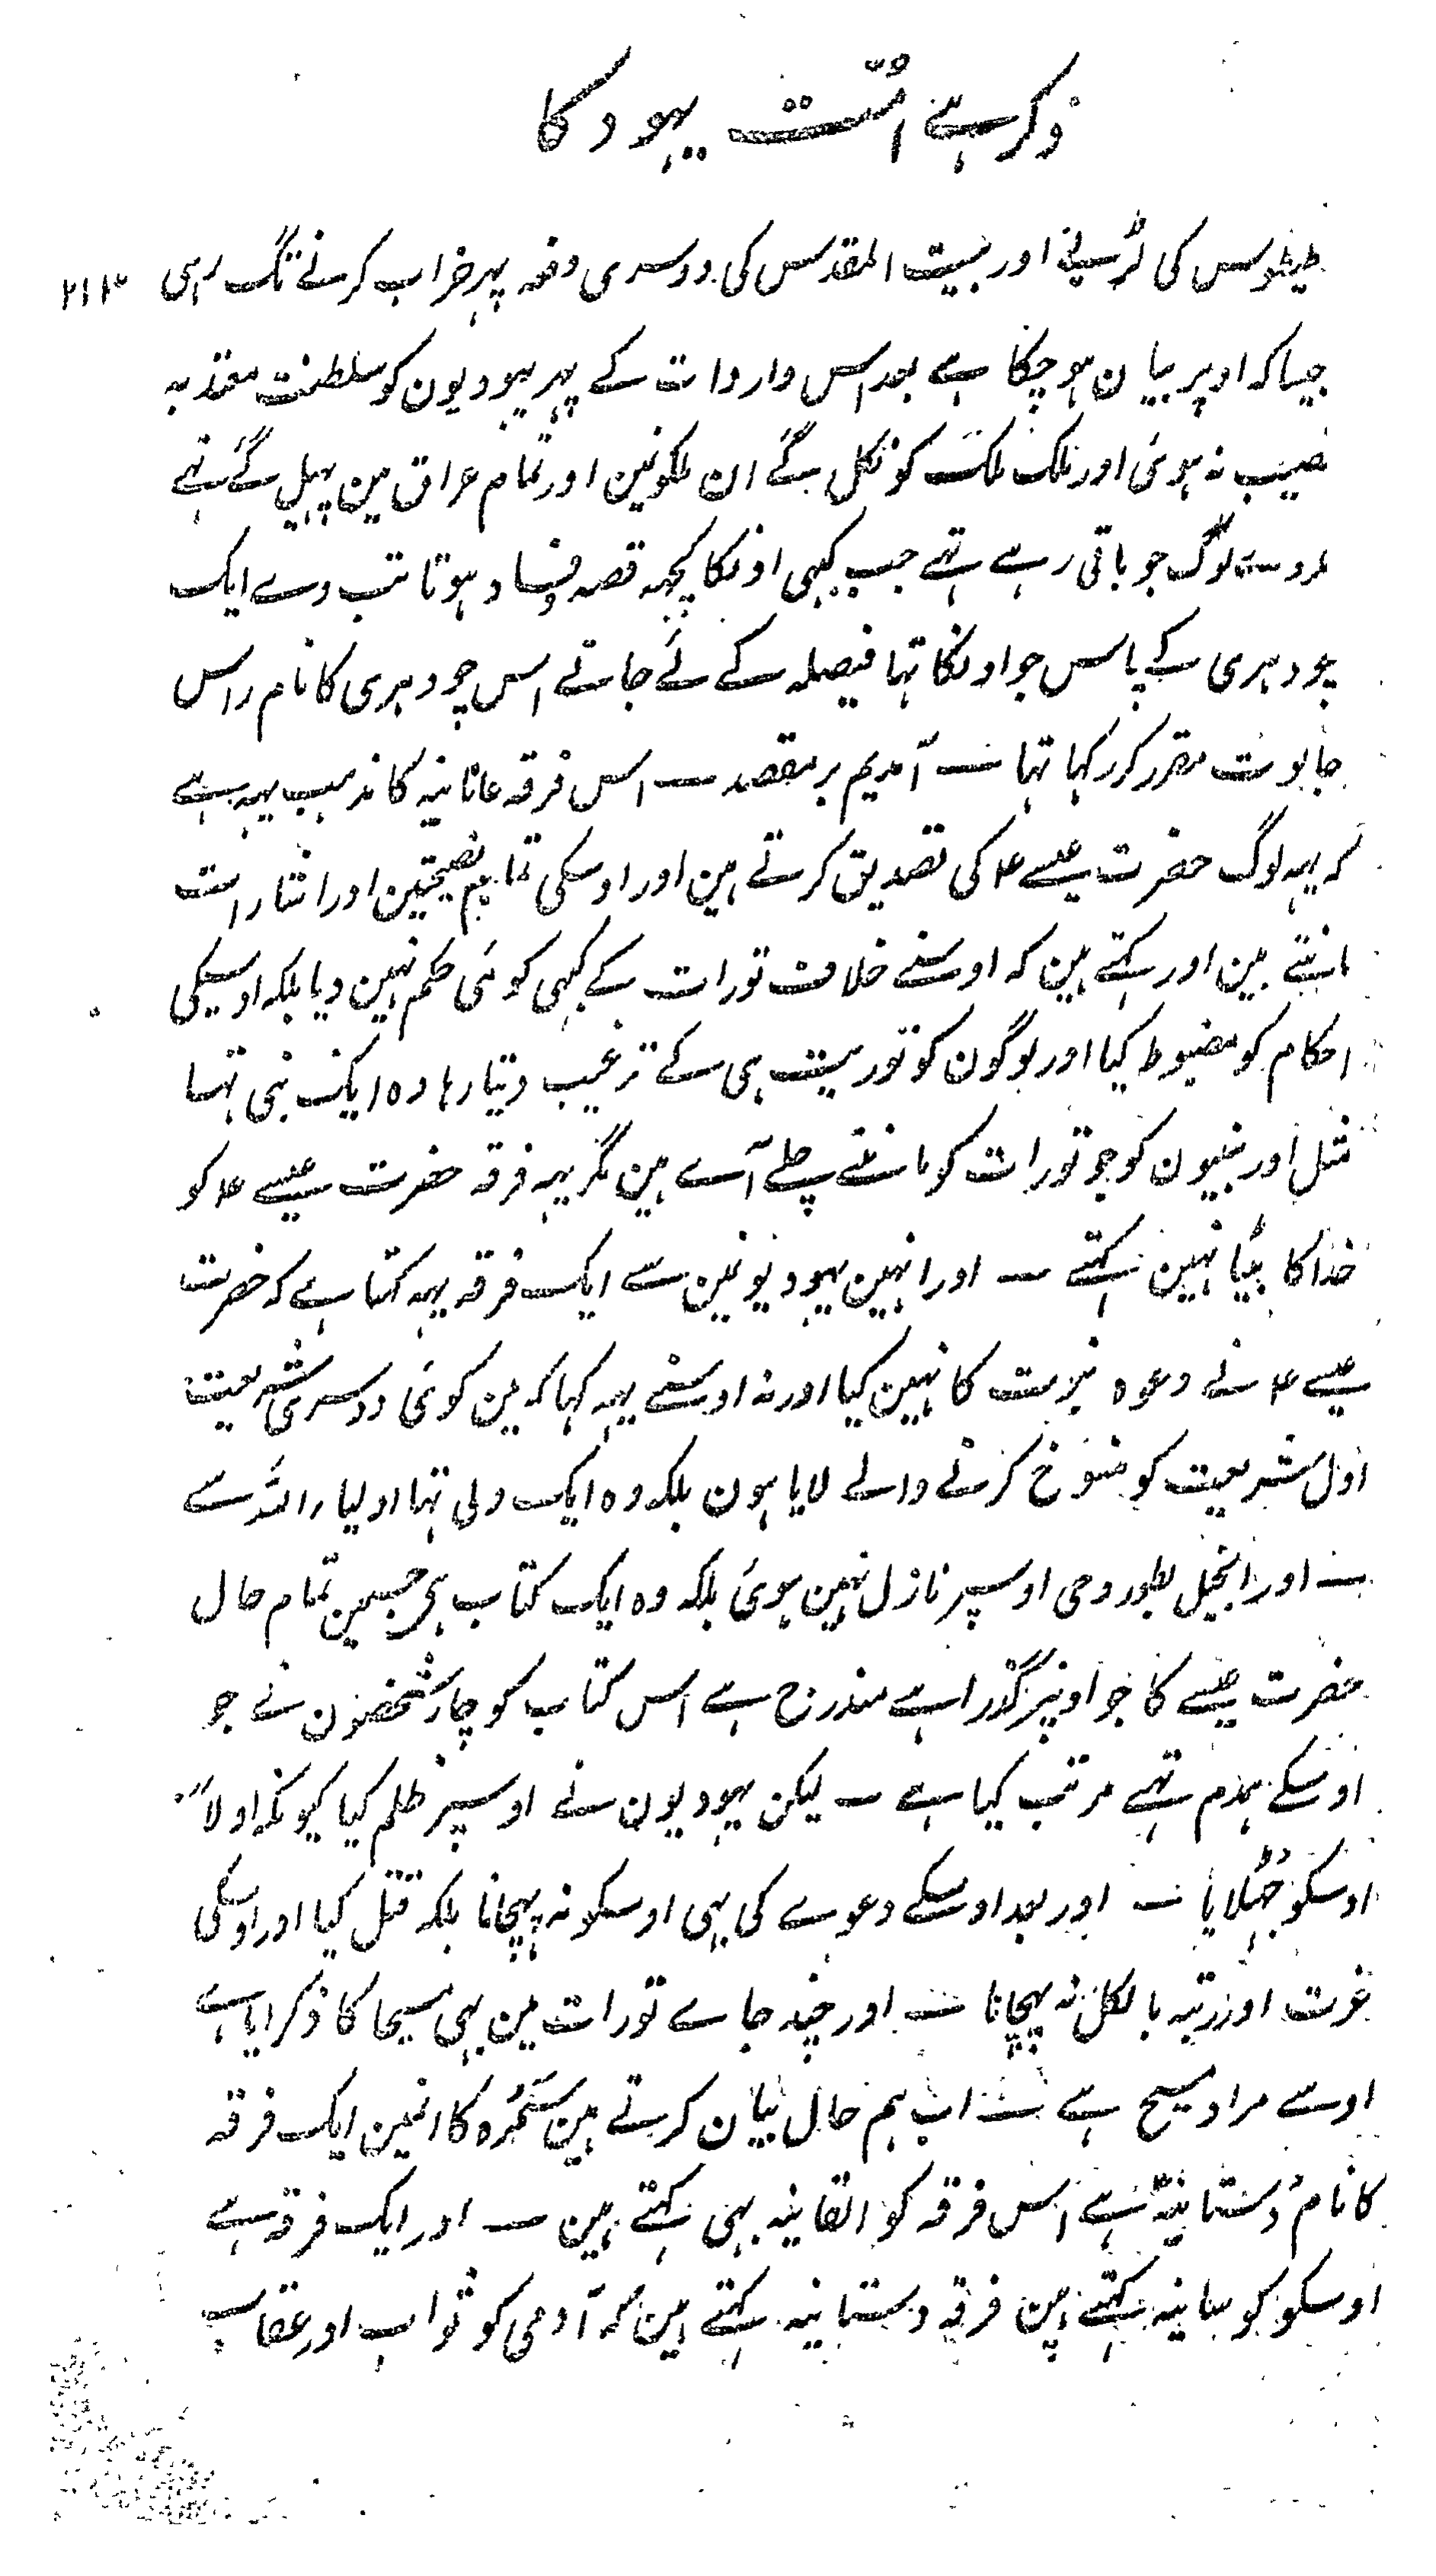 ذکر ہے امّت یہود کا
طیطوس کی لڑنے اور بیت المقدس کی دوسری دفعہ پہر خراب کرنے تک رہی ۲۱۳
جیسا کہ اوپر بیان ہو چکا ہے بعد اس واردات کے پہر یہودیون کو سلطنت معتد بہ
نصیب نہ ہوئی اور ملک ملک کو نکل گئے ان ملکونمین اور تمام عراق مین پہیل گئے تہے
لوگ جو باقی رہے تہے جب کبہی اونکا کچہہ قصہ فساد ہوتا تب وے ایک
چودہری کے پاس جو اونکا تہا فیصلہ کے لئے جاتے اس چودہری کا نام راس
جالوت مقرر کر رکہا تہا ۔ آمدیم بر مقصد ۔ اس فرقہ عانانیہ کا مذہب یہہ ہے
کہ یہہ لوگ حضرت عیسے ۴ کی تصدیق کرتے ہین اور اوسکی تمام نصیحتین اور اشارات
مانتے ہین اور کہتے ہین کہ اوسنے خلاف تورات کے کبہی کوئی حکم نہین دیا بلکہ اوسیکی
احکام کو مضبوط کیا اور لوگون کو توریت ہی کے ترغیب دیتا رہا وہ ایک نبی تہا
مثل اور نبیون کو جو تورات کو مانتے چلے آے ہین مگر یہہ فرقہ حضرت عیسے ۴ کو
خدا کا بیٹا نہین کہتے ۔ اور انہین یہودیونمین سے ایک فرقہ یہہ کہتا ہے کہ حضرت
عیسے ۴ نے دعوہ نبوت کا نہین کیا اور نہ اوسنے یہہ کہا کہ مین کوئی دوسری شریعت
اول شریعت کو منسوخ کرنے والے لایا ہون بلکہ وہ ایک ولی تہا اولیاء اللہ سے
۔ اور انجیل بطور وحی اوسپر نازل نہین ہوئی بلکہ وہ ایک کتاب ہی جسمین تمام حال
حضرت عیسے کا جو اونپر گذرا ہے مندرج ہے اس کتاب کو چار شخصون نے جو
اوسکے ہمدم تہے مرتب کیا ہے ۔ لیکن یہودیون نے اوسپر ظلم کیا کیونکہ اولاً
اوسکو جہٹلایا ۔ اور بعد اوسکے دعوے کی بہی اوسکو نہ پہچانا بلکہ قتل کیا اور اوسکی
عزت اور رتبہ بالکل نہ پہچانا ۔ اور چند جاے تورات مین بہی مسیحا کا ذکر ایا ہے
اوسے مراد مسیح ہے ۔ اب ہم حال بیان کرتے ہین سَمُرہ کا انمین ایک فرقہ
کا نام دستانیہ ہے اس فرقہ کو الفانیہ بہی کہتے ہین ۔ اور ایک فرقہ ہے
اوسکو کوسانیہ کہتے ہین فرقہ دستانیہ کہتے ہین کہ آدمی کو ثواب اور عقاب